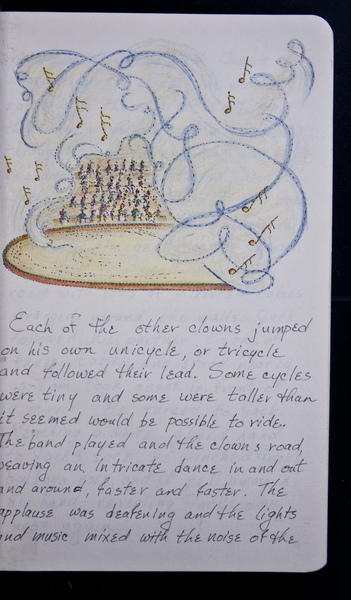 Each of the other clowns jumped
on his own unicycle, or tricycle
and followed their lead. Some cycles
were tiny and some were taller than
it seemed would be possible to ride..
The band played and the clowns road,
weaving an intricate dance in and out
and around, faster and faster. The
applause was deafening and the lights
and music mixed with the noise of the